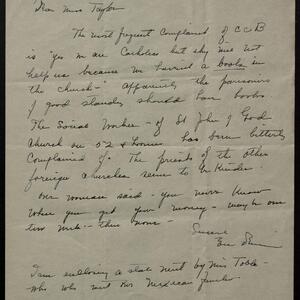 Dear Miss Taylor
The most frequent Complaint of CCB
is "yes we are Catholics but they will not
help us because we haven't a book in
the church -" Apparently the parishioners
of good standing should have books.
The Social Worker - of St John of God
Church on 52 & Loomis has been bitterly
Complained of. The priests of the other
foreign churches seem to be kinder.
One woman said - you never know
when you get your money - maybe one
two wks - then none -
Sincerely
I am enclosing a slate sent by Miss
who Mexican